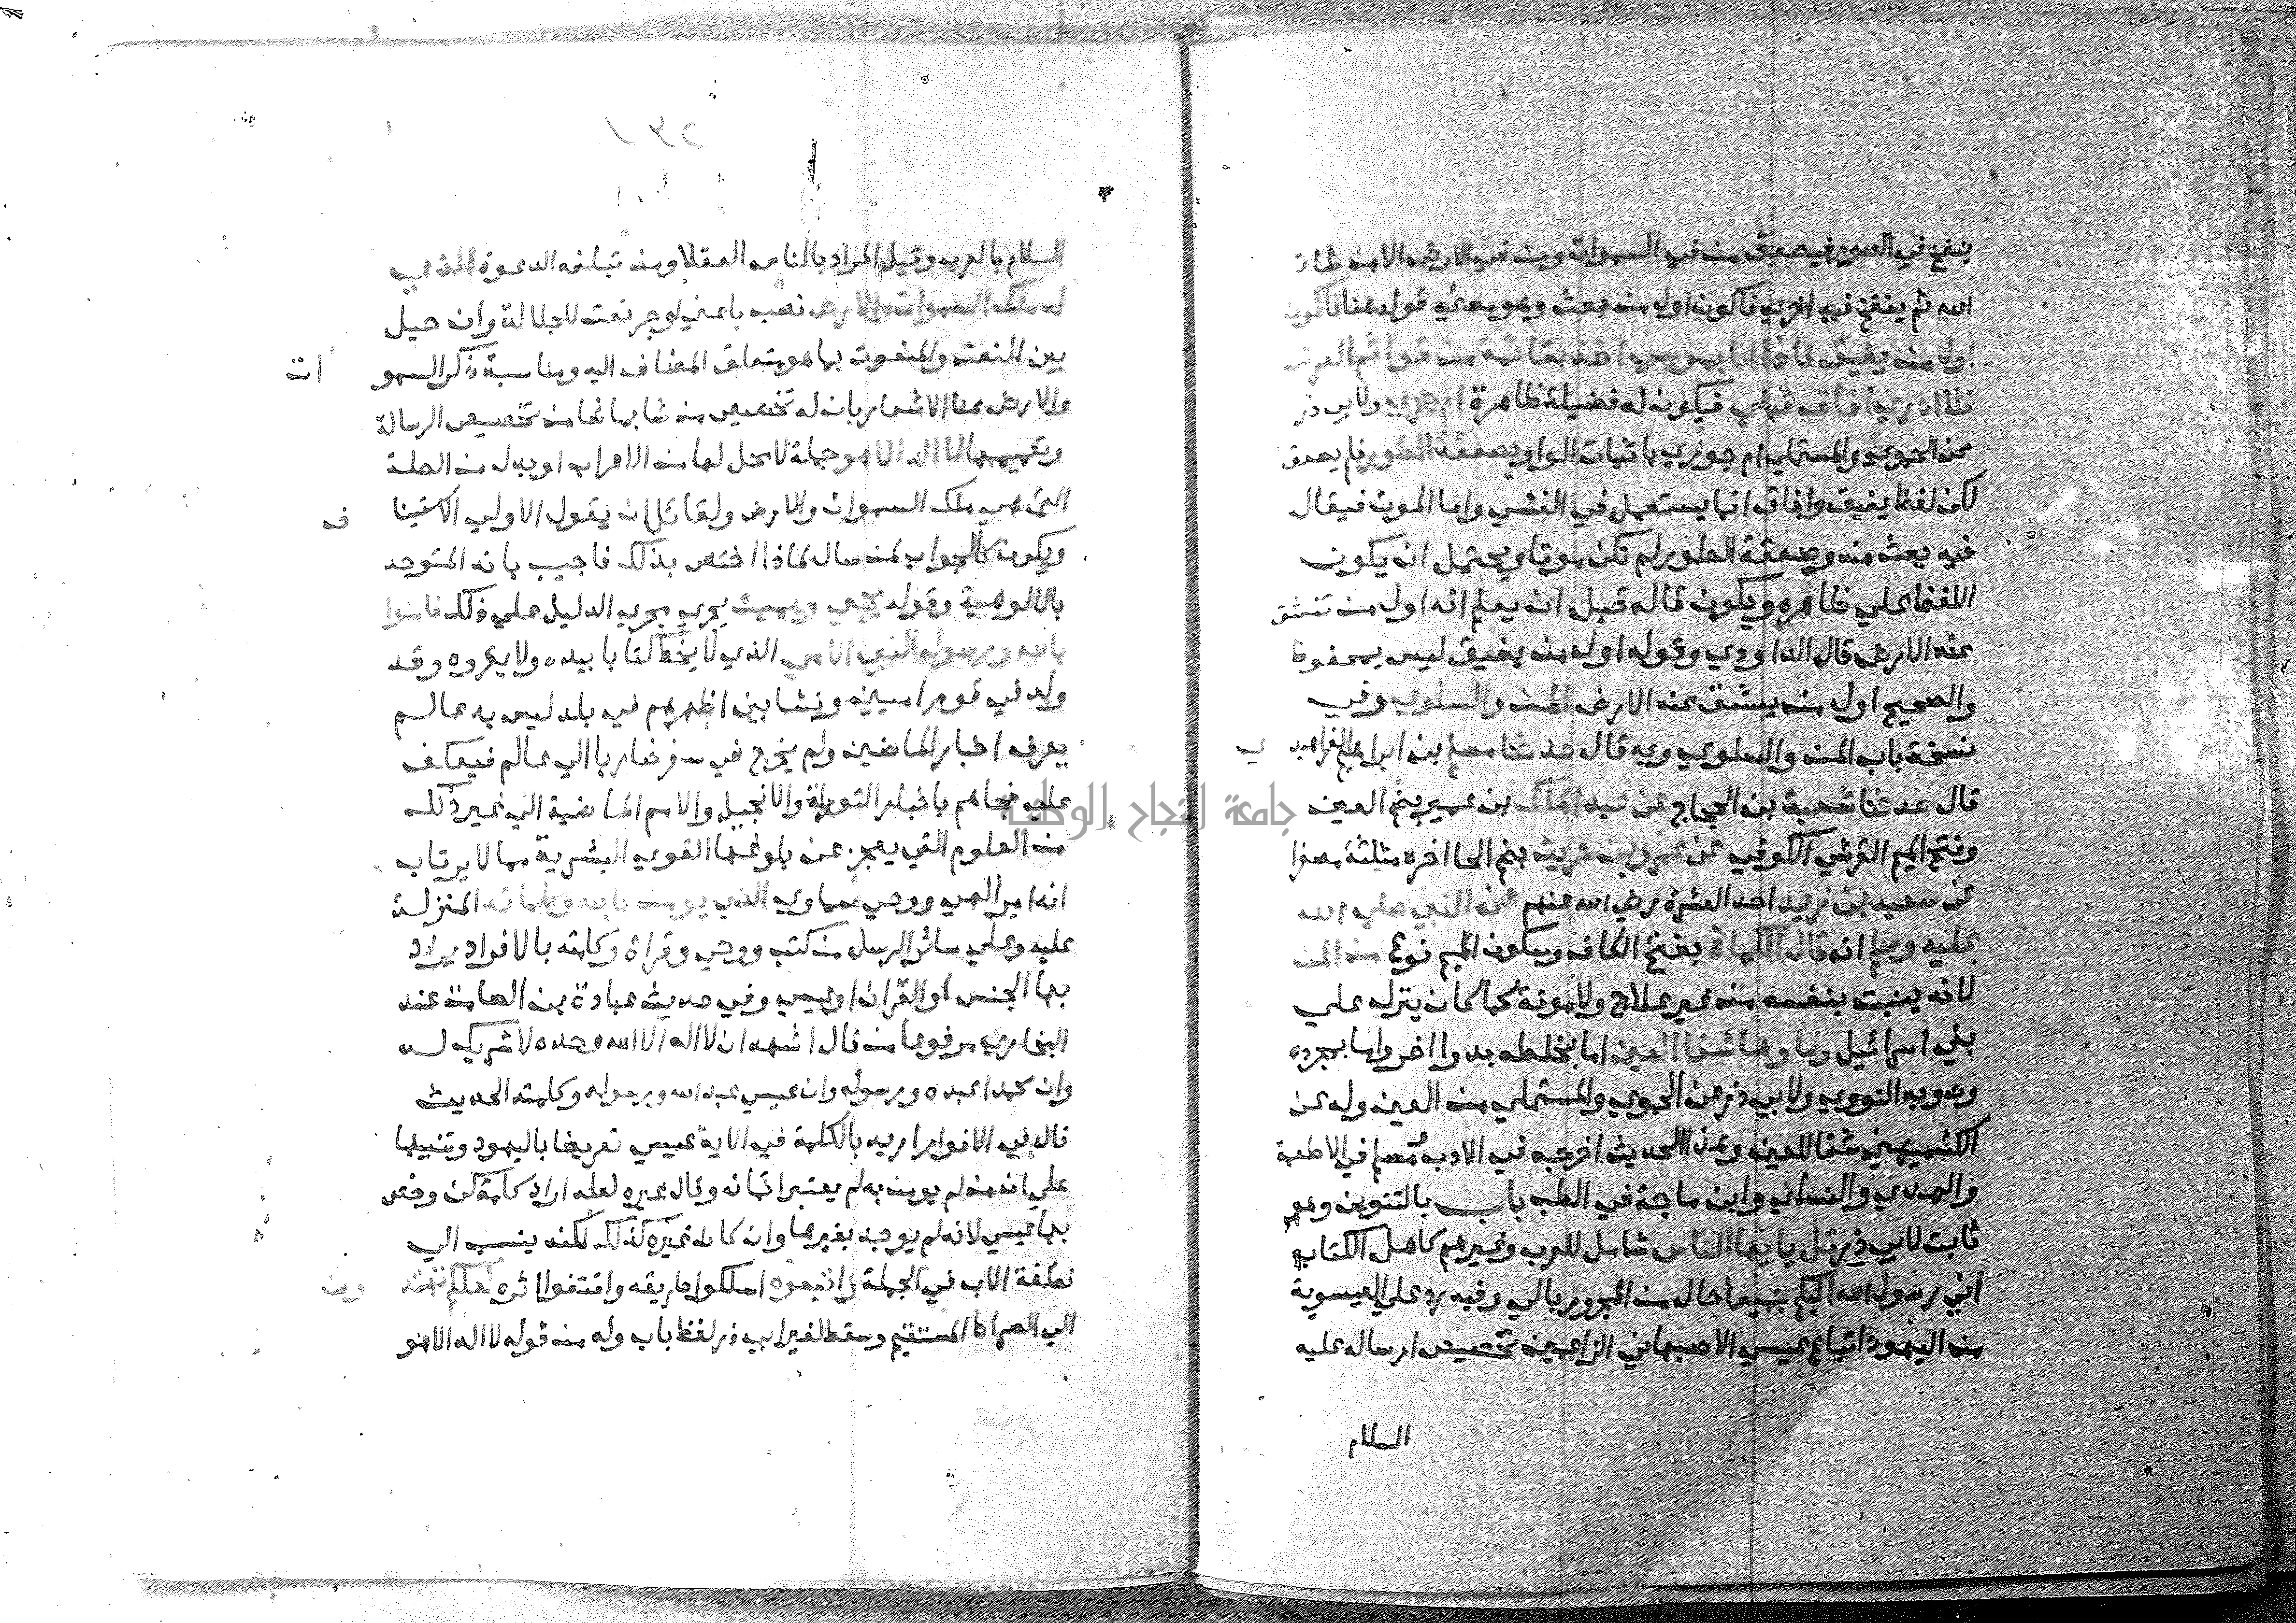 ينفخ في الصور فيصعق من في السموات ومن في الارض الا من شاء
الله ثم ينفخ فيه اخري فاكون اول من بعث وهو معني قوله هنا فاكون
اول من يفيق فاذا انا بموسي اخذ بقائمة من قوائم العرش
فلا ادري افاق قبلي فيكون له فضيلة ظاهرة ام جزي ولابي ذر
عن الحموي والمستملي ام جوزي باثبات الواو بصعقة الطور فلم يصعق
لكن لفظ يفيق وافاق انما يستعمل في الغشي واما الموت فيقال
فيه بعث منه وصعقة الطور لم تكن موتا ويحتمل ان يكون
اللفظ علي ظاهره ويكون قاله قبل ان يعلم انه اول من تنشق
عنه الارض قال الداودي وقوله اول من يفيق ليس بمحفوظ
والصحيح اول من ينشق عنه الارض المن والسلوي وفي
نسخة باب المن والسلوي وبه قال حدثنا مسلم بن ابراهيم الفراهيدي
قال حدثنا شعبة بن الحجاج عن عبد الملك بن عمير بضم العين
وفتح الميم القرشي الكوفي عن عمرو بن حريث بضم الحا اخره مثلثة مصغرا
عن سعيد بن زيد احد العشرة رضي الله عنهم عن النبي صلي الله
عليه وسلم انه قال الكماة بفتح الكاف وسكون الميم نوع من المن
لانه ينبت بنفسه من غير علاج ولا مونة كما كان ينزل علي
بني اسرائيل وماوها شفا العين اما بخلطه بدوا اخر واما بمجرده
وصوبه النووي ولابي ذر عن الحموي والمستملي من العين وله عن
الكشميهني شفا للعين وهذا الحديث اخرجه في الادب ومسلم في الاطعمة
والترمذي والنساي وابن ماجة في الطب باب بالتنوين وهو
ثابت لابي ذر قل يا يها الناس شامل للعرب وغيرهم كاهل الكتاب
اني رسول الله اليكم جميعا حال من المجرور بالي وفيه رد علي العيسوية
من اليهود اتباع عيسي الاصبهاني الزاعمين تخصيص ارساله عليه
السلام
٢٣١
السلام بالعرب وقيل المراد بالناس العقلا ومن تبلغه الدعوة الذي
له ملك السموات والارض نصب باعني او جر نعت للجلالة وان حيل
بين النعت والمنعوت بما هو متعلق المضاف اليه ومناسبة ذكر السموات
والارض هنا الاشعار بان له تخصيص من شا بما شا من تخصيص الرسالة
وتعميمها لا اله الا هو جملة لا محل لها من الاعراب او بدل من الصلة
التي هي ملك السموات والارض ولقائل ان يقول الاولي الاستيناف
ويكون كالجواب لمن سال لماذا اختص بذلك فاجيب بانه المتوحد
بالالوهية وقوله يحيي ويميت يجري مجري الدليل علي ذلك فامنوا
بالله ورسوله النبي الامي الذي لا يخط كتابا بيده ولا يقروه وقد
ولد في قوم اميين ونشا بين اظهرهم في بلد ليس به عالم
يعرف اخبار الماضين ولم يخرج في سفر ضاربا الي عالم فيعكف
عليه فجاهم باخبار التوراة والانجيل والامم الماضية الي غير ذلك
من العلوم التي يعجز عن بلوغها القوي البشرية مما لا يرتاب
انه امر الهي ووحي سماوي الذي يومن بالله وكلماته المنزلة
عليه وعلي سائر الرسل من كتب ووحي وقراة وكلمته بالافراد يراد
بها الجنس او القران او عيسي وفي حديث عبادة بن الصامت عند
البخاري مرفوعا من قال اشهد ان لا اله الا الله وحده لا شريك له
وان محمدا عبده ورسوله وان عيسي عبد الله ورسوله وكلمته الحديث
قال في الانوار اريد بالكلمة في الاية عيسي تعريضا باليهود وتنبيها
علي ان من لم يومن به لم يعتبر ايمانه وقال غيره لعله اراد كلمة كن وخص
بها عيسي لانه لم يوجد بغيرها وان كان غيره كذلك لكنه ينسب الي
نطفة الاب في الجملة واتبعوه اسلكوا طريقه واقتفوا اثره لعلكم تهتدون
الي الصراط المستقيم وسقط لغير ابي ذر لفظ باب وله من قوله لا اله الا هو
جامعة النجاح الوطنية